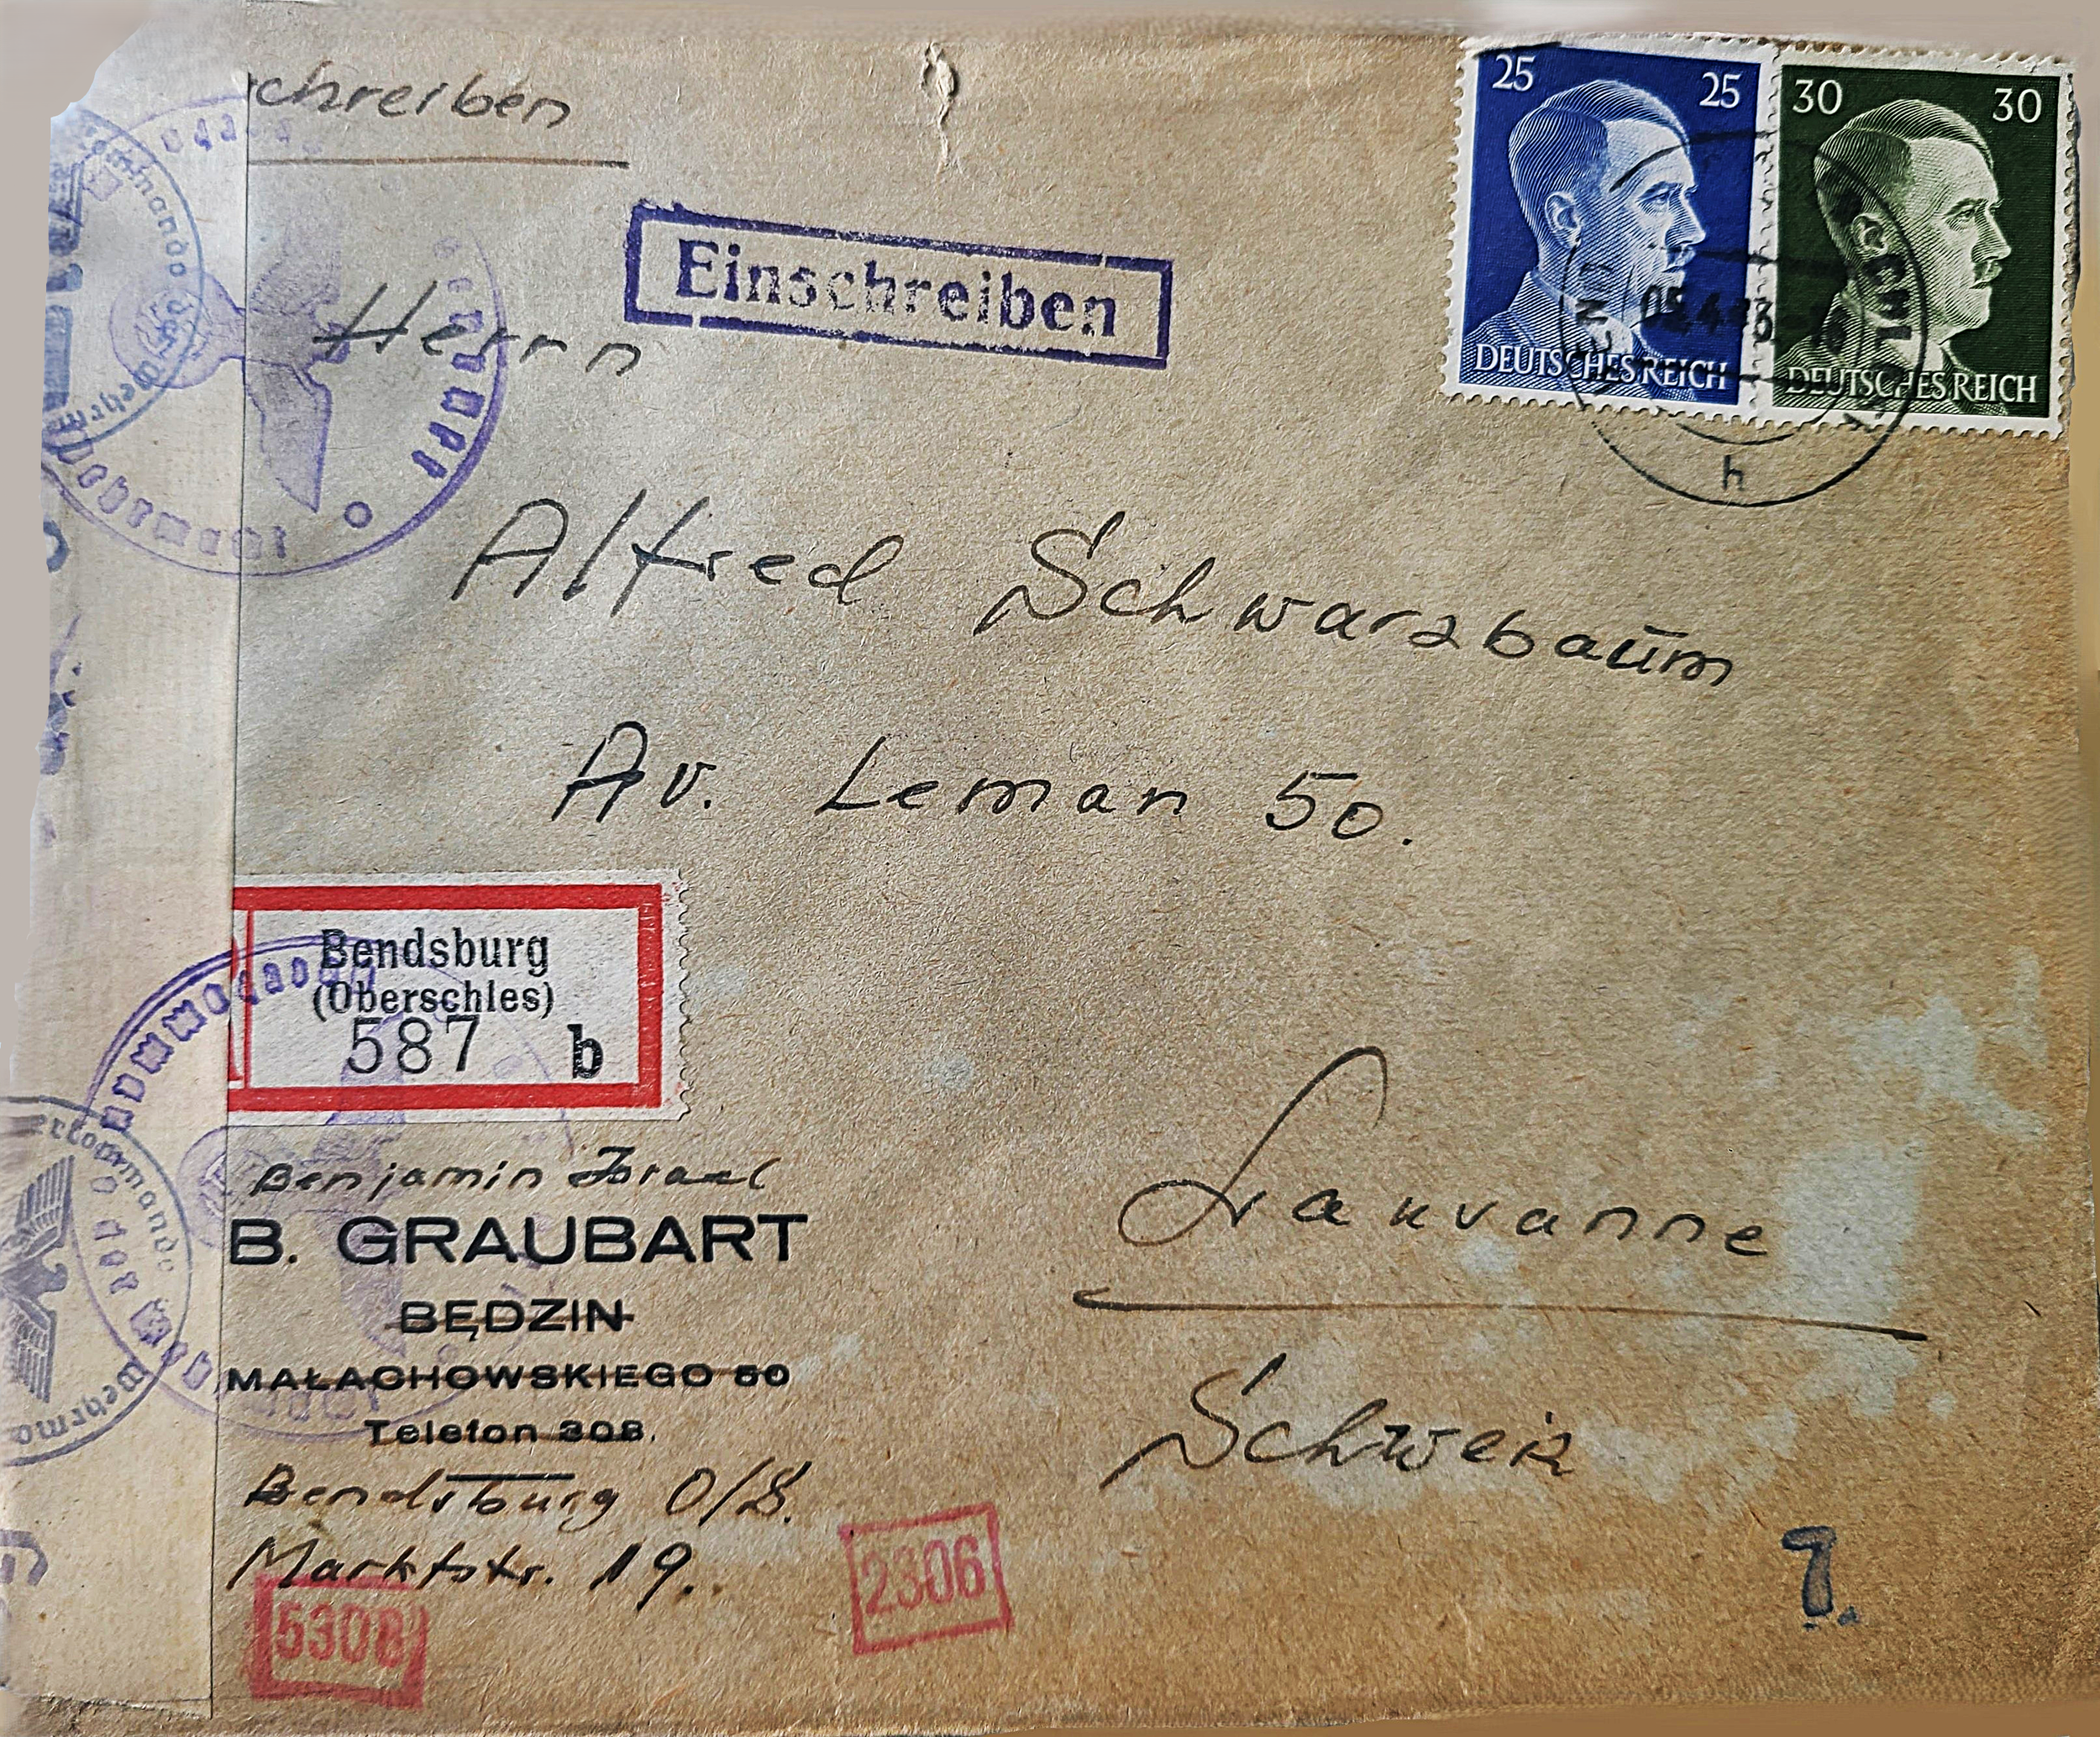 chreiben
Einschreiben
25 25
DEUTSCHES REICH
30 30
DEUTSCHES REICH
h
Herrn
Alfred Schwarzbaum
Av. Leman 50.
Bendsburg
(Oberschles)
587 b
Lausanne
Schweiz
Benjamin Israel
B. GRAUBART
BĘDZIN
MAŁACHOWSKIEGO 50
Telefon 308.
Bendsburg O/S.
Marktstr. 19.
5308
2306
7.